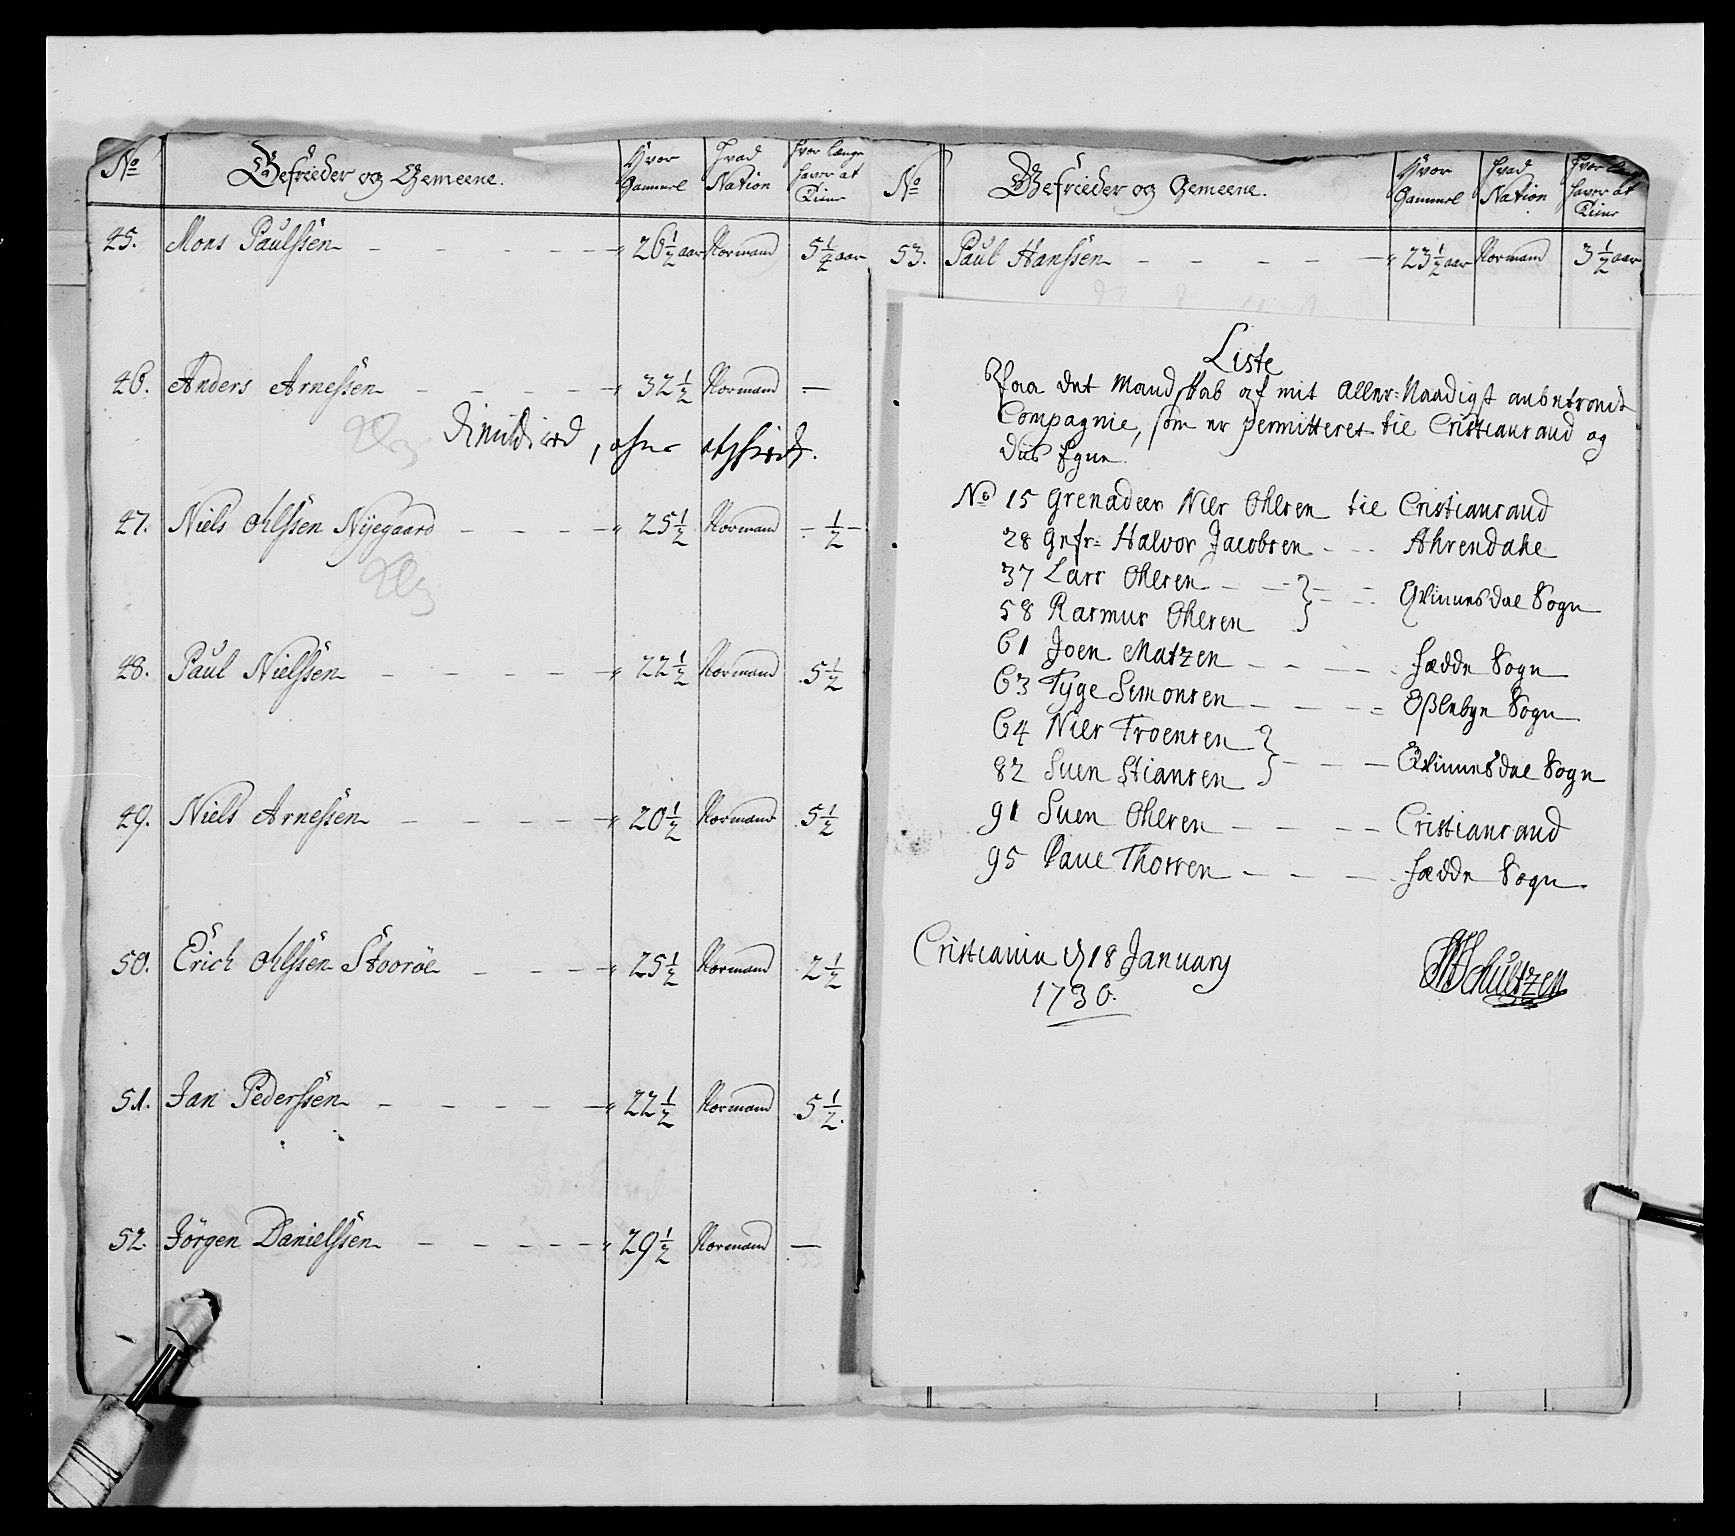 No Gefrieder og Gemeene. Hvor Gammel Hvad Nation Hvor længe haver at Tiene
45. Mons Paulssen 26 1/2 aar Normand 5 1/2 aar
46. Anders Arnessen 32 1/2 Normand —
47. Niels Ohlssen Nyegaard 25 1/2 Normand 1/2
48. Paul Nielssen 22 1/2 Normand 5 1/2
49. Niels Arnessen 20 1/2 Normand 5 1/2
50. Erich Ohlssen Stooröe 25 1/2 Normand 2 1/2
51. Jan Pederssen 22 1/2 Normand 5 1/2.
52. Jörgen Danielssen 29 1/2 Normand —
No Gefrieder og Gemeene. Hvor Gammel Hvad Nation Hvor længe haver at Tiene
53. Paul Hanssen 23 1/2 aar Normand 3 1/2 aar
Liste
Paa det Mandskab af mit Aller-Naadigst anbetroede
Compagnie, som er permitteret til Cristiansand og
dens Egne
No 15 Grenadeer Niels Ohlsen til Cristiansand
28 Gefr: Halvor Jacobsen Ahrendahl
37 Lars Ohlsen
58 Rasmus Ohlsen Qvinnesdal Sogn
61 Joen Matzen Fædde Sogn
63 Tyge Simonsen Sogn
64 Niels Troensen
82 Suen Stiansen Qvinnesdal Sogn
91 Suen Ohlsen Cristiansand
95 Paul Thorsen Fædde Sogn
Cristiania d 18 January
1730.
Schultzen